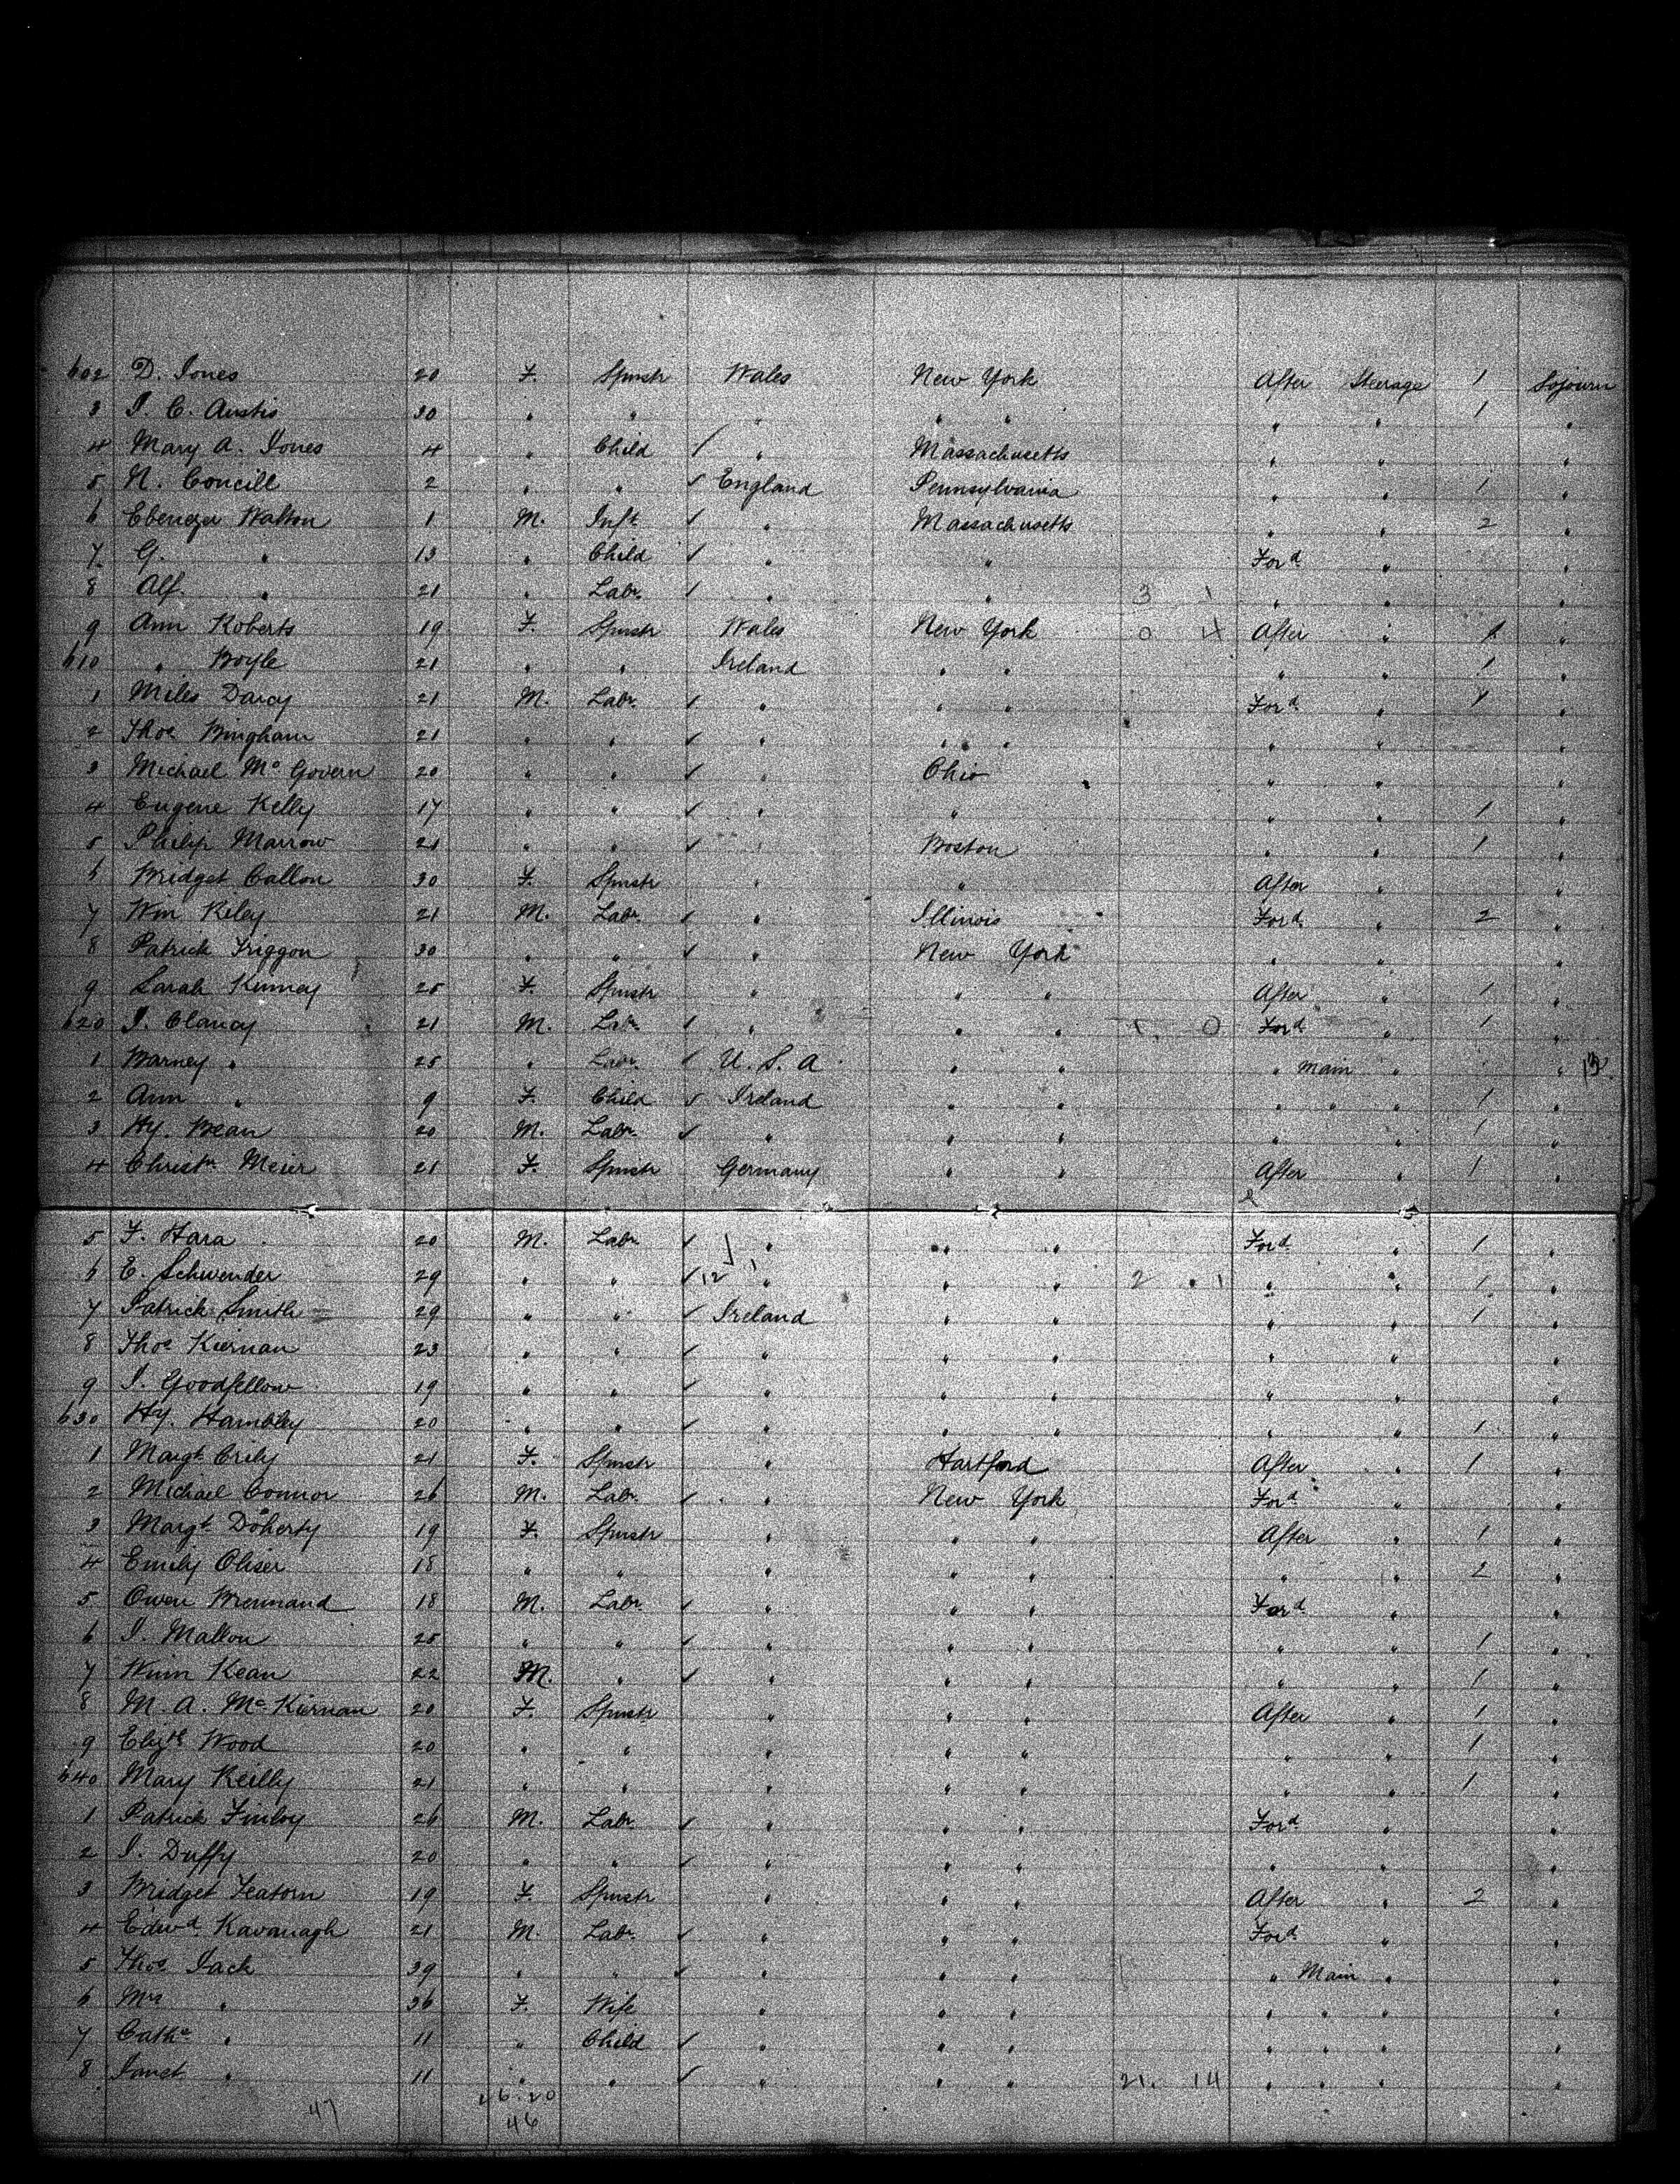 602 D. Jones 20 F. Spinstr Wales New York After Steerage 1 Sojourn
3 J. C. Austis 30 " " " " " " " 1 "
4 Mary A. Jones 4 " Child / " Massachusetts " " "
5 N. Concill 2 " " ✓ England Pennsylvania " " 1 "
6 Ebenezer Walton 1 M. Inft ✓ " Massachusetts " " 2 "
7 G. " 13 " Child ✓ " " Ford " "
8 Alf. " 21 " Labr. ✓ " " 3 1 " " "
9 Ann Roberts 19 F. Spinstr Wales New York 0 4 After " 1 "
610 " Boyle 21 " " Ireland " " " " 1 "
1 Miles Darcy 21 M. Labr. ✓ " " " Ford " 1 "
2 Thos Bingham 21 " " ✓ " " " " " "
3 Michael Mc Govern 20 " " ✓ " Ohio " " "
4 Eugene Kelly 17 " " ✓ " " " " 1 "
5 Philip Marrow 21 " " ✓ " Boston " " 1 "
6 Bridget Callon 30 F. Spinstr " " After " "
7 Wm Riley 21 M. Labr. ✓ " Illinois Ford " 2 "
8 Patrick Friggon 30 " " ✓ " New York " " "
9 Sarah Kinney 25 F. Spinstr " " " After " 1 "
620 J. Clancy 21 M. Labr ✓ " " " 1. 0 Ford " 1 "
1 Barney " 25 " Labr. ✓ U. S. A " " " Main " "
2 Ann " 9 F. Child ✓ Ireland " " " " " 1 "
3 Hy. Bean 20 M. Labr. ✓ " " " " " 1 "
4 Christn Meier 21 F. Spinstr Germany " " After " 1 "
5 F. Hara 20 M. Labr ✓ " " " Ford " 1 "
6 E. Schwender 29 " " ✓ 12 " " " 2 1 " " 1 "
7 Patrick Smith 29 " " ✓ Ireland " " " " 1 "
8 Thos Kiernan 23 " " ✓ " " " " " "
9 J. Goodfellow 19 " " ✓ " " " " " "
630 Hy. Hambley 20 " " ✓ " " " " " 1 "
1 Margt Crily 21 F. Spinstr " Hartford After " 1 "
2 Michael Connor 26 M. Labr. ✓ " New York Ford " "
3 Margt Doherty 19 F. Spinstr " " " After " 1 "
4 Emily Oliser 18 " " " " " " " 2 "
5 Owen Brennand 18 M. Labr. ✓ " " " Ford " "
6 J. Mallon 25 " " ✓ " " " " " 1 "
7 Winn Kean 22 M. " ✓ " " " " " 1 "
8 M. A. Mc Kiernan 20 F. Spinstr " " " After " 1 "
9 Elizth Wood 20 " " " " " " " 1 "
640 Mary Reilly 21 " " " " " " " 1 "
1 Patrick Finloy 26 M. Labr. ✓ " " " Ford " "
2 J. Duffy 20 " " ✓ " " " " " "
3 Bridget Featorn 19 F. Spinstr " " " After " 2 "
4 Edwd. Kavanagh 21 M. Labr. ✓ " " " Ford " "
5 Thos Jack 39 " " ✓ " " " " Main " "
6 Mrs " 36 F. Wife " " " " " " "
7 Cathe " 11 " Child ✓ " " " " " " "
8 Janet " 11 " " ✓ " " " 21. 14 " " " "
47 26.20
46